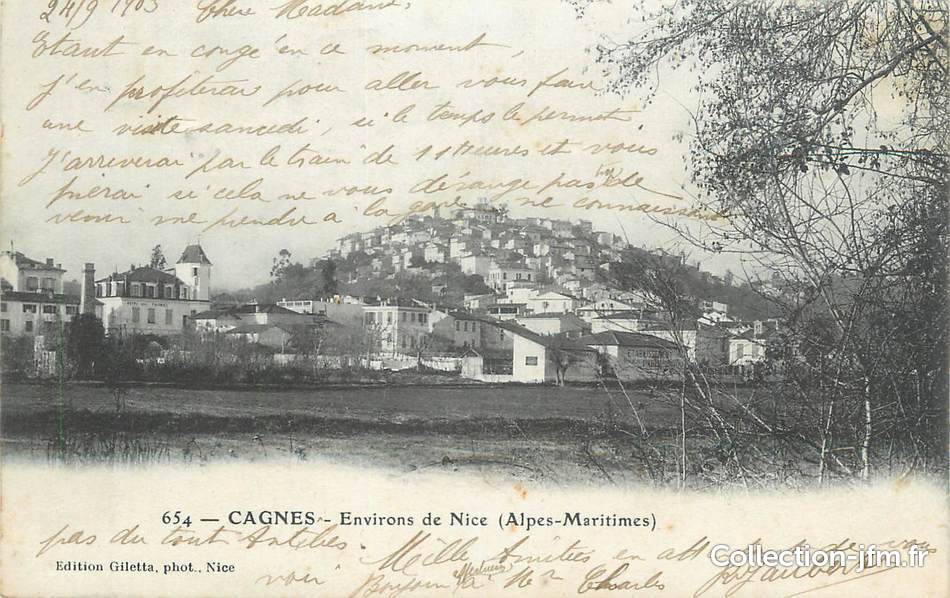 24/9 1903 Chère Madame,
Etant en congé en ce moment,
j'en profiterai pour aller vous faire
une visite samedi, si le temps le permet.
J'arriverai par le train de 11 Heures et vous
prierai si cela ne vous dérange pas trop de
venir me prendre à la gare, ne connaissant
654 — CAGNES - Environs de Nice (Alpes-Maritimes)
pas du tout Antibes. Mille Amitiés en att de vous
Edition Giletta, phot., Nice
voir Bonjour à Mr Charles
Collection-jfm.fr